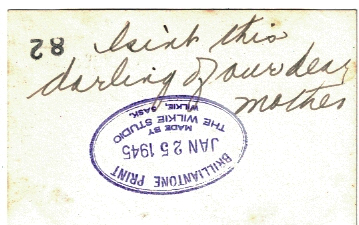 Isint this
darling of our dear
mother
82
BRILLIANTONE PRINT
JAN 25 1945
MADE BY
THE WILKIE STUDIO
WILKIE, SASK.